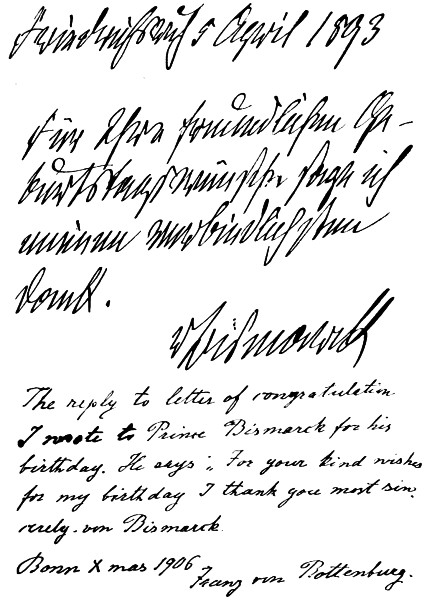 Friedrichsruh 5 April 1893
Für Ihre freundlichen Ge-
burtstagswünsche sage ich
meinen verbindlichsten
Dank.
vBismarck
The reply to letter of congratulation
I wrote to Prince Bismarck for his
birthday. He says: „For your kind wishes
for my birthday I thank you most sin-
cerely. von Bismarck
Bonn Xmas 1906
Franz von Rottenburg.